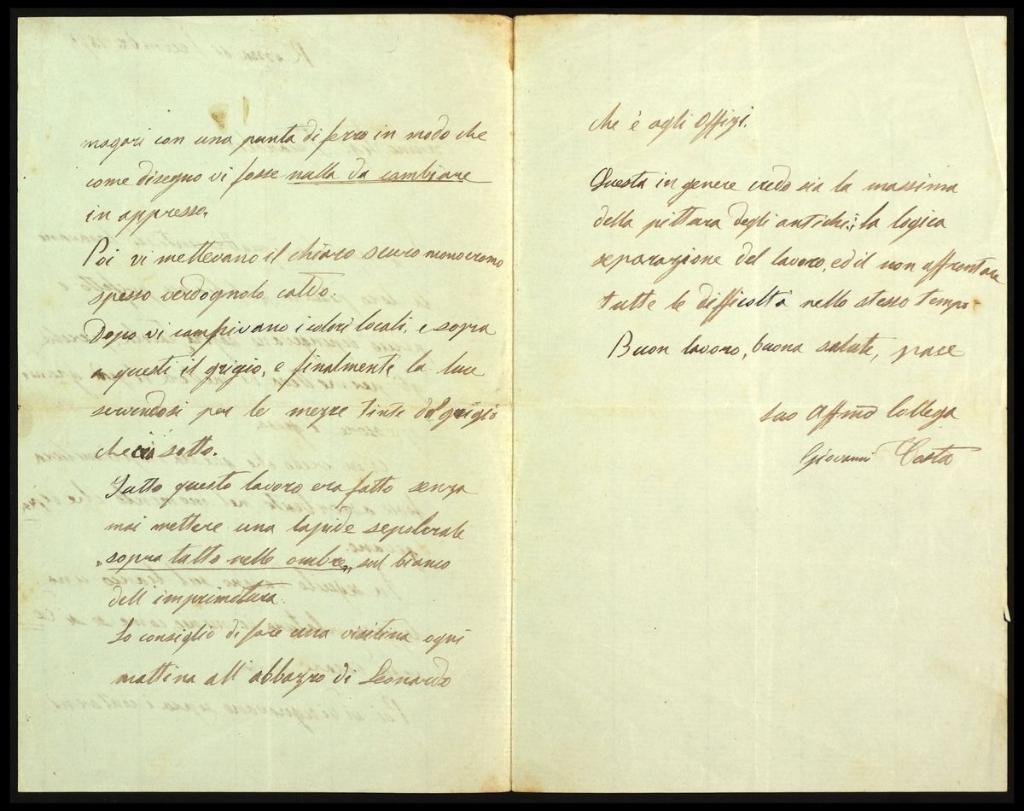 magari con una punta di ferro in modo che
come disegno vi fosse nulla da cambiare
in appresso.
Poi vi mettevano il chiaro scuro monocromo
spesso verdognolo caldo.
Dopo vi campivano i colori locali, e sopra
a questi il grigio, e finalmente la luce
servendosi per le mezze tinte del grigio
che sotto.
Tutto questo lavoro era fatto senza
mai mettere una lapide sepolcrale
„sopra tutto nelle ombre„ sul bianco
dell'imprimitura.
Lo consiglio di fare una visitina ogni
mattina all'abbozzo di Leonardo
che è agli Offizi.
Questa in genere credo sia la massima
della pittura degli antichi; la logica
separazione del lavoro, ed il non affrontare
tutte le difficoltà nello stesso tempo.
Buon lavoro, buona salute, pace
Suo Affmo Collega
Giovanni Costa